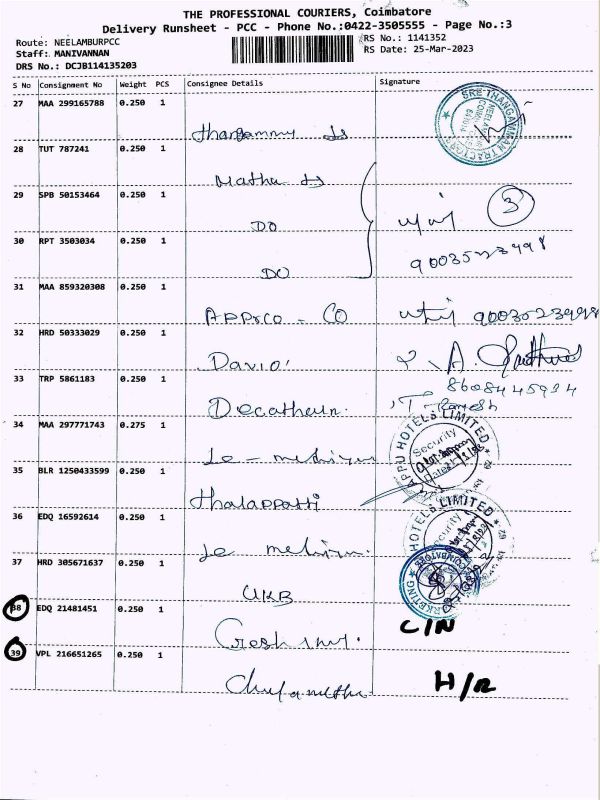 THE PROFESSIONAL COURIERS, Coimbatore
Delivery Runsheet - PCC - Phone No.:0422-3505555 - Page No.:3
Route: NEELAMBURPCC
Staff: MANIVANNAN
DRS No.: DCJB114135203
RS No.: 1141352
RS Date: 25-Mar-2023
S No Consignment No Weight PCS Consignee Details Signature
27 MAA 299165788 0.250 1
SRE THANGAMMAN TRACTORS
28 TUT 787241 0.250 1
Matha
29 SPB 50153464 0.250 1
DO
3
30 RPT 3503034 0.250 1
DO
9003523998
31 MAA 859320308 0.250 1
Appsco - CO
9003523998
32 HRD 50333029 0.250 1
David
33 TRP 5861183 0.250 1
8608445934
Decathlun.
T. Ramesh
34 MAA 297771743 0.275 1
Le - meh
APPU HOTELS LIMITED
Security
35 BLR 1250433599 0.250 1
thalappatti
36 EDQ 16592614 0.250 1
HOTELS LIMITED
Le
37 HRD 305671637 0.250 1
UKB
38 EDQ 21481451 0.250 1
C/N
39 VPL 216651265 0.250 1
H/R